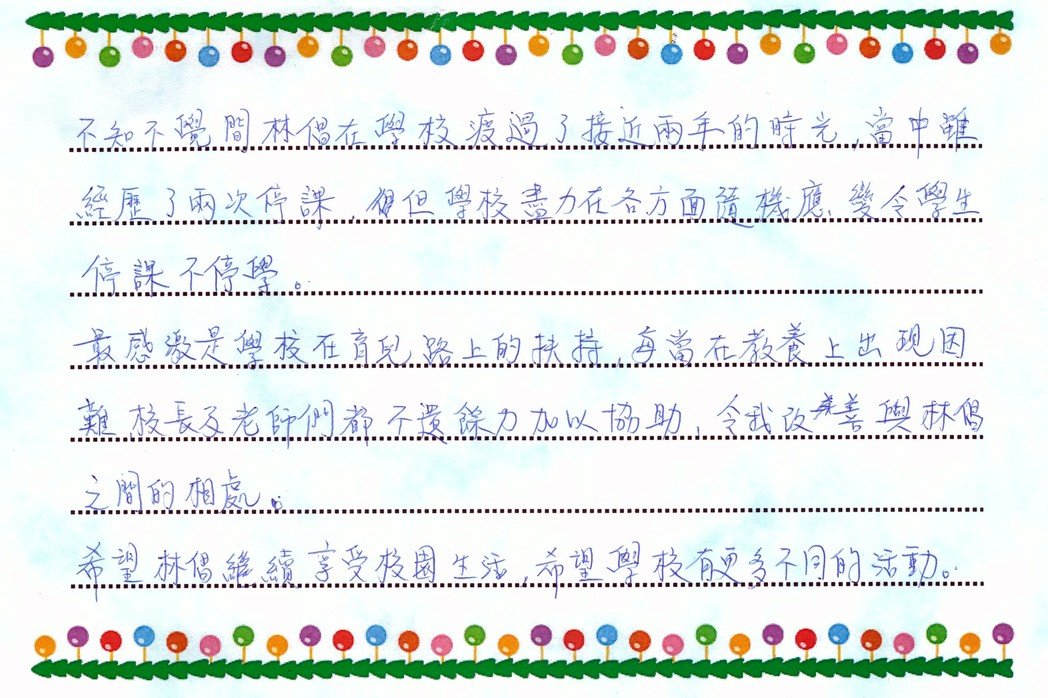 不知不覺間林倡在學校渡過了接近兩年的時光,當中雖
經歷了兩次停課,但學校盡力在各方面隨機應變令學生
停課不停學。
最感激是學校在育兒路上的扶持,每當在教養上出現困
難校長及老師們都不遺餘力加以協助,令我改善與林倡
之間的相處。
希望林倡繼續享受校園生活,希望學校有更多不同的活動。